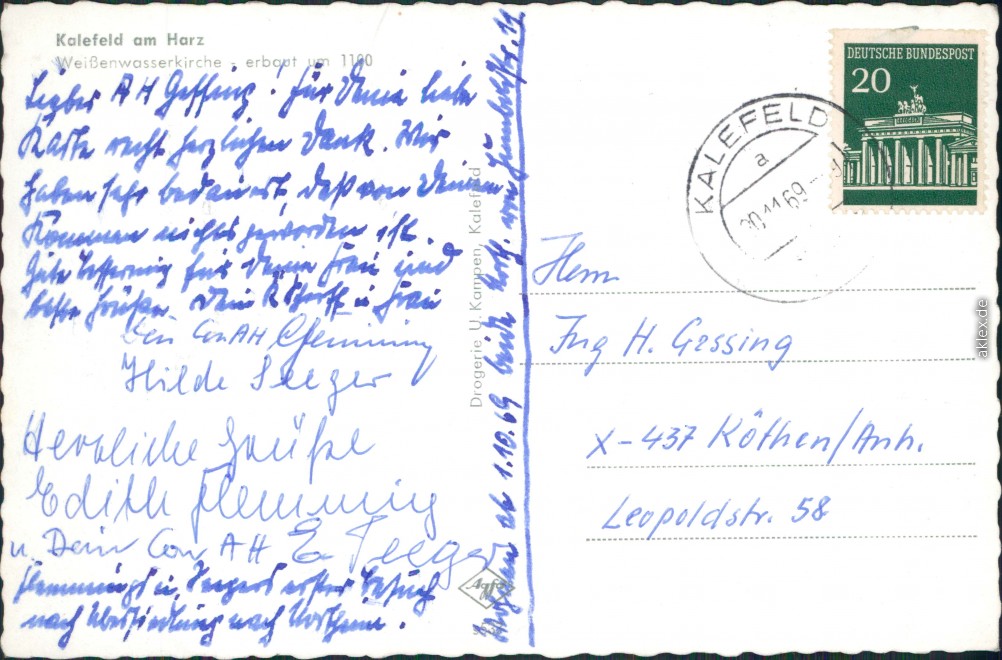 Kalefeld am Harz
Weißenwasserkirche - erbaut um 1100
Lieber AH Gessing! Für Deine liebe
Karte recht herzlichen Dank. Wir
haben sehr bedauert, daß von Deinem
Kommen nichts geworden ist.
Gute Besserung für Deine Frau und
beste Grüße. Dein R u. Frau
Dein Con AH Flemming
Hilde Seeger
Herzliche Grüße
Edith Flemming
u. Dein Con AH E. Seeger
Flemmings u. Seegers erster Besuch
nach Übersiedlung nach Northeim.
ab 1.10.69 beide North. 11
Drogerie U. Kampen, Kalefeld
Agfa
DEUTSCHE BUNDESPOST
20
KALEFELD
a
20.11.69
Herrn
Ing H. Gessing
X-437 Köthen/Anh.
Leopoldstr. 58
aklex.de